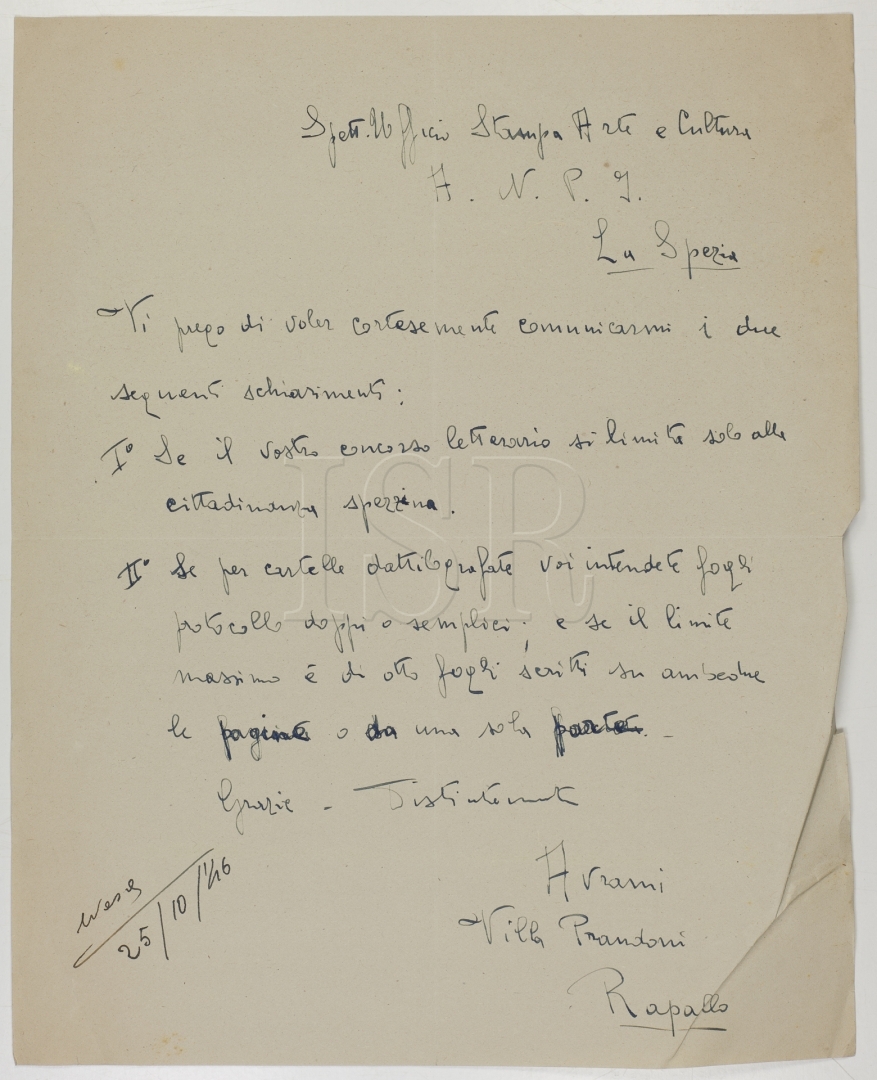 Spett. Ufficio Stampa Arte e Cultura
A. N. P. I.
La Spezia
Vi prego di voler cortesemente comunicarmi i due
seguenti schiarimenti:
I° Se il vostro concorso letterario si limita solo alla
cittadinanza spezzina.
II° Se per cartelle dattilografate voi intendete fogli
protocollo doppi o semplici; e se il limite
massimo è di otto fogli scritti su ambedue
le pagine o da una sola parte. -
Grazie - Distintamente
Avrami
Villa Prandoni
Rapallo
25/10/1946
ISR